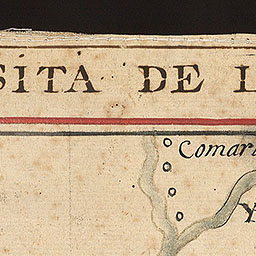 SITA DE L
Comar
Y